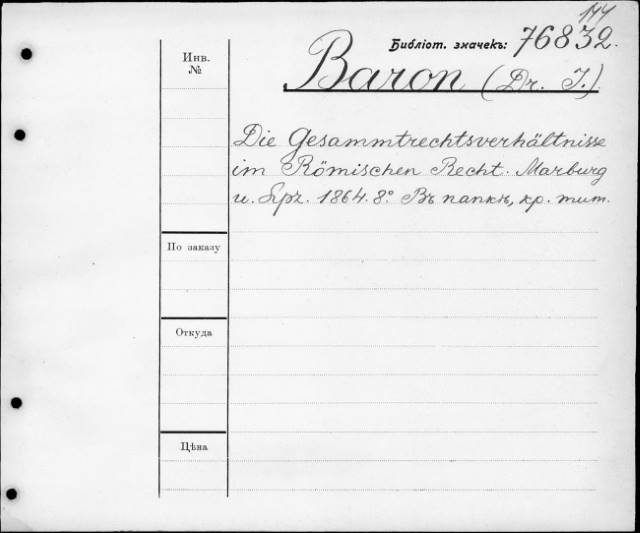 144
Библіот. значекъ: 76832.
Инв. №
Baron (Dr. J.)
Die Gesammtrechtsverhältnisse
im Römischen Recht. Marburg
u. Lpz. 1864. 8° Въ папкѣ, кр. тит.
По заказу
Откуда
Цѣна